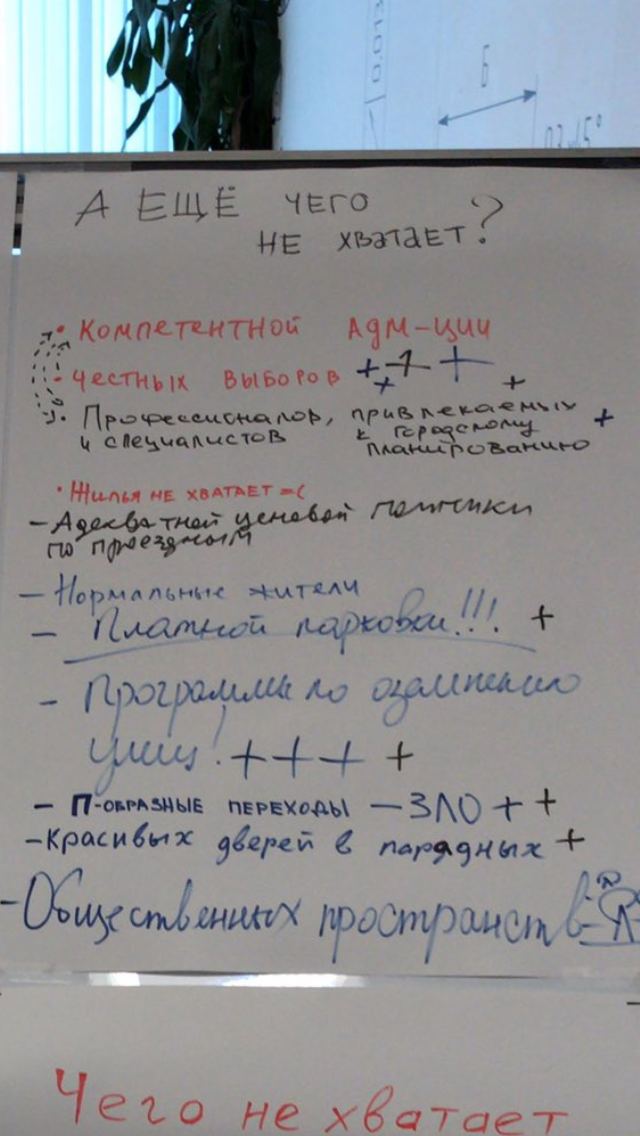 0.013
Б
А ЕЩЁ ЧЕГО
НЕ ХВАТАЕТ?
• КОМПЕТЕНТНОЙ АДМ-ЦИИ
- ЧЕСТНЫХ ВЫБОРОВ + + + +
+
• Профессионалов, привлекаемых +
и специалистов к городскому
планированию
• Жилья НЕ ХВАТАЕТ =(
- Адекватной ценовой политики
по проездным
- Нормальные жители
- Платной парковки!!! +
- Программы по озеленению
улиц! + + + +
- П-ОБРАЗНЫЕ ПЕРЕХОДЫ - ЗЛО + +
- Красивых дверей в парадных +
- Общественных пространств
Чего не хватает